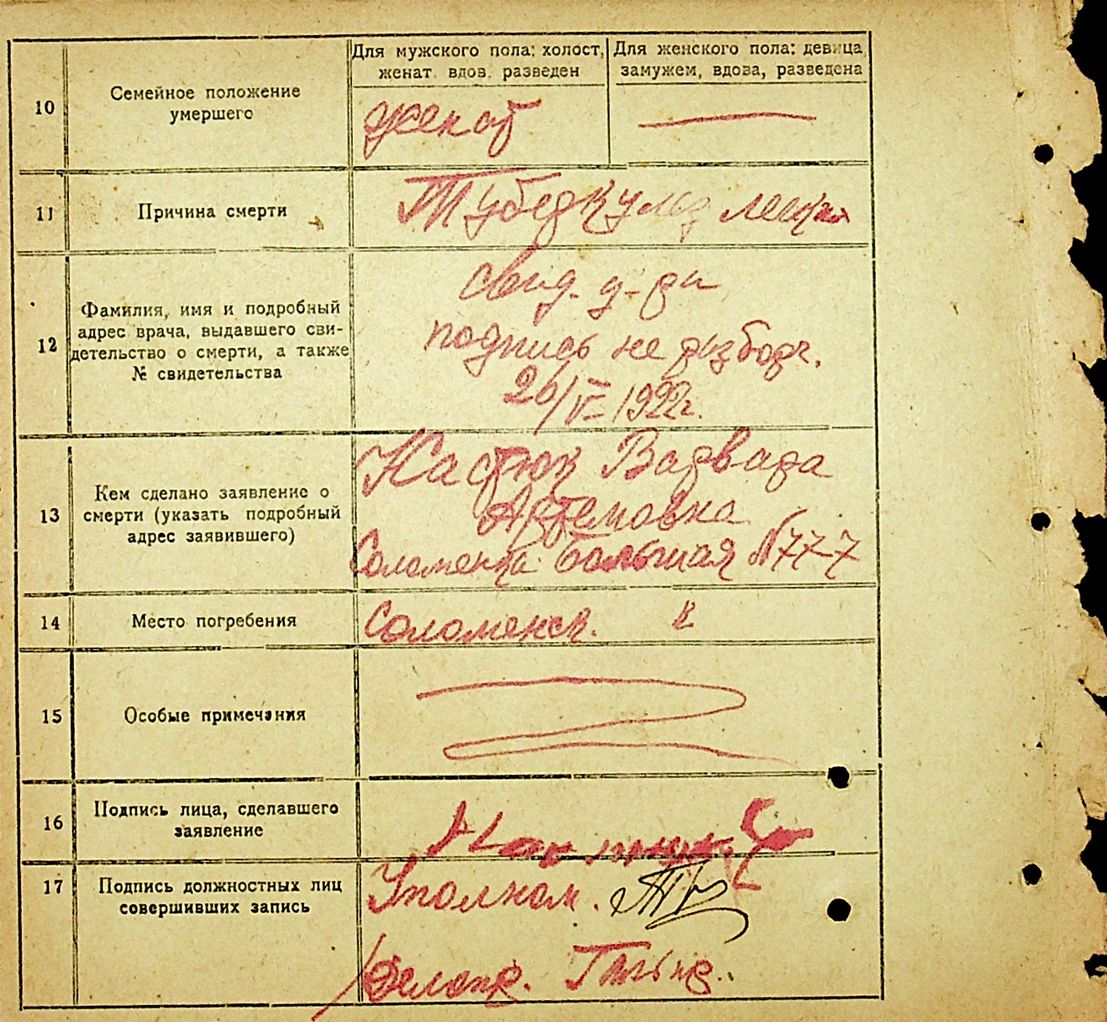 10
Семейное положение
умершего
Для мужского пола: холост,
женат вдов. разведен
Для женского пола: девица
замужем, вдова, разведена
женат
11
Причина смерти
Туберкулез легких
12
Фамилия, имя и подробный
адрес врача, выдавшего сви-
детельство о смерти, а также
№ свидетельства
свид. д-ра
подпись не разборч.
26/V-1922г.
13
Кем сделано заявление о
смерти (указать подробный
адрес заявившего)
Варвара
Артемовна
Соломенка Большая №77-7
14
Место погребения
Соломенск. к
15
Особые примечания
16
Подпись лица, сделавшего
заявление
17
Подпись должностных лиц
совершивших запись
Уполном.
Делопр.